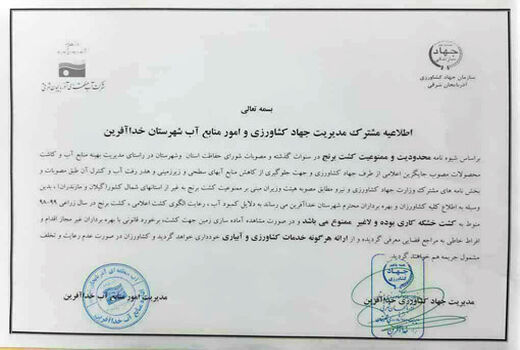 جهاد
سازمان جهاد کشاورزی
آذربایجان شرقی
بسمه تعالی
اطلاعیه مشترک مدیریت جهاد کشاورزی و امور منابع آب شهرستان خداآفرین
براساس شیوه نامه محدودیت و ممنوعیت کشت برنج در سنوات گذشته و مصوبات شورای حفاظت استان وشهرستان در راستای مدیریت بهینه منابع آب و کاشت
محصولات مصوب جایگزین اعلامی از طرف جهاد کشاورزی و جهت جلوگیری از کاهش منابع آبهای سطحی و زیرزمینی و هدر رفت آب و کنترل آن طبق مصوبات و
بخش نامه های مشترک وزارت جهاد کشاورزی و نیرو مطابق مصوبه هیئت وزیران مبنی بر ممنوعیت کشت برنج به غیر از استانهای شمال کشور(گیلان و مازندران) ، بدین
وسیله به اطلاع کلیه کشاورزان و بهره برداران محترم شهرستان خداآفرین می رساند به دلایل کمبود آب ، رعایت الگوی کشت اعلامی ، کشت برنج در سال زراعی ۹۹-۹۸
منوط به کشت خشکه کاری بوده و لاغیر ممنوع می باشد و در صورت مشاهده آماده سازی زمین جهت کشت، برخورد قانونی با بهره برداران غیر مجاز اقدام و
افراد خاطی به مراجع قضایی معرفی گردیده و از ارائه هرگونه خدمات کشاورزی و آبیاری خودداری خواهد گردید و کشاورزان در صورت عدم رعایت و تخلف
مشمول جریمه هم خواهند گردید.
مدیریت جهاد کشاورزی خداآفرین
مدیریت امور منابع آب خداآفرین